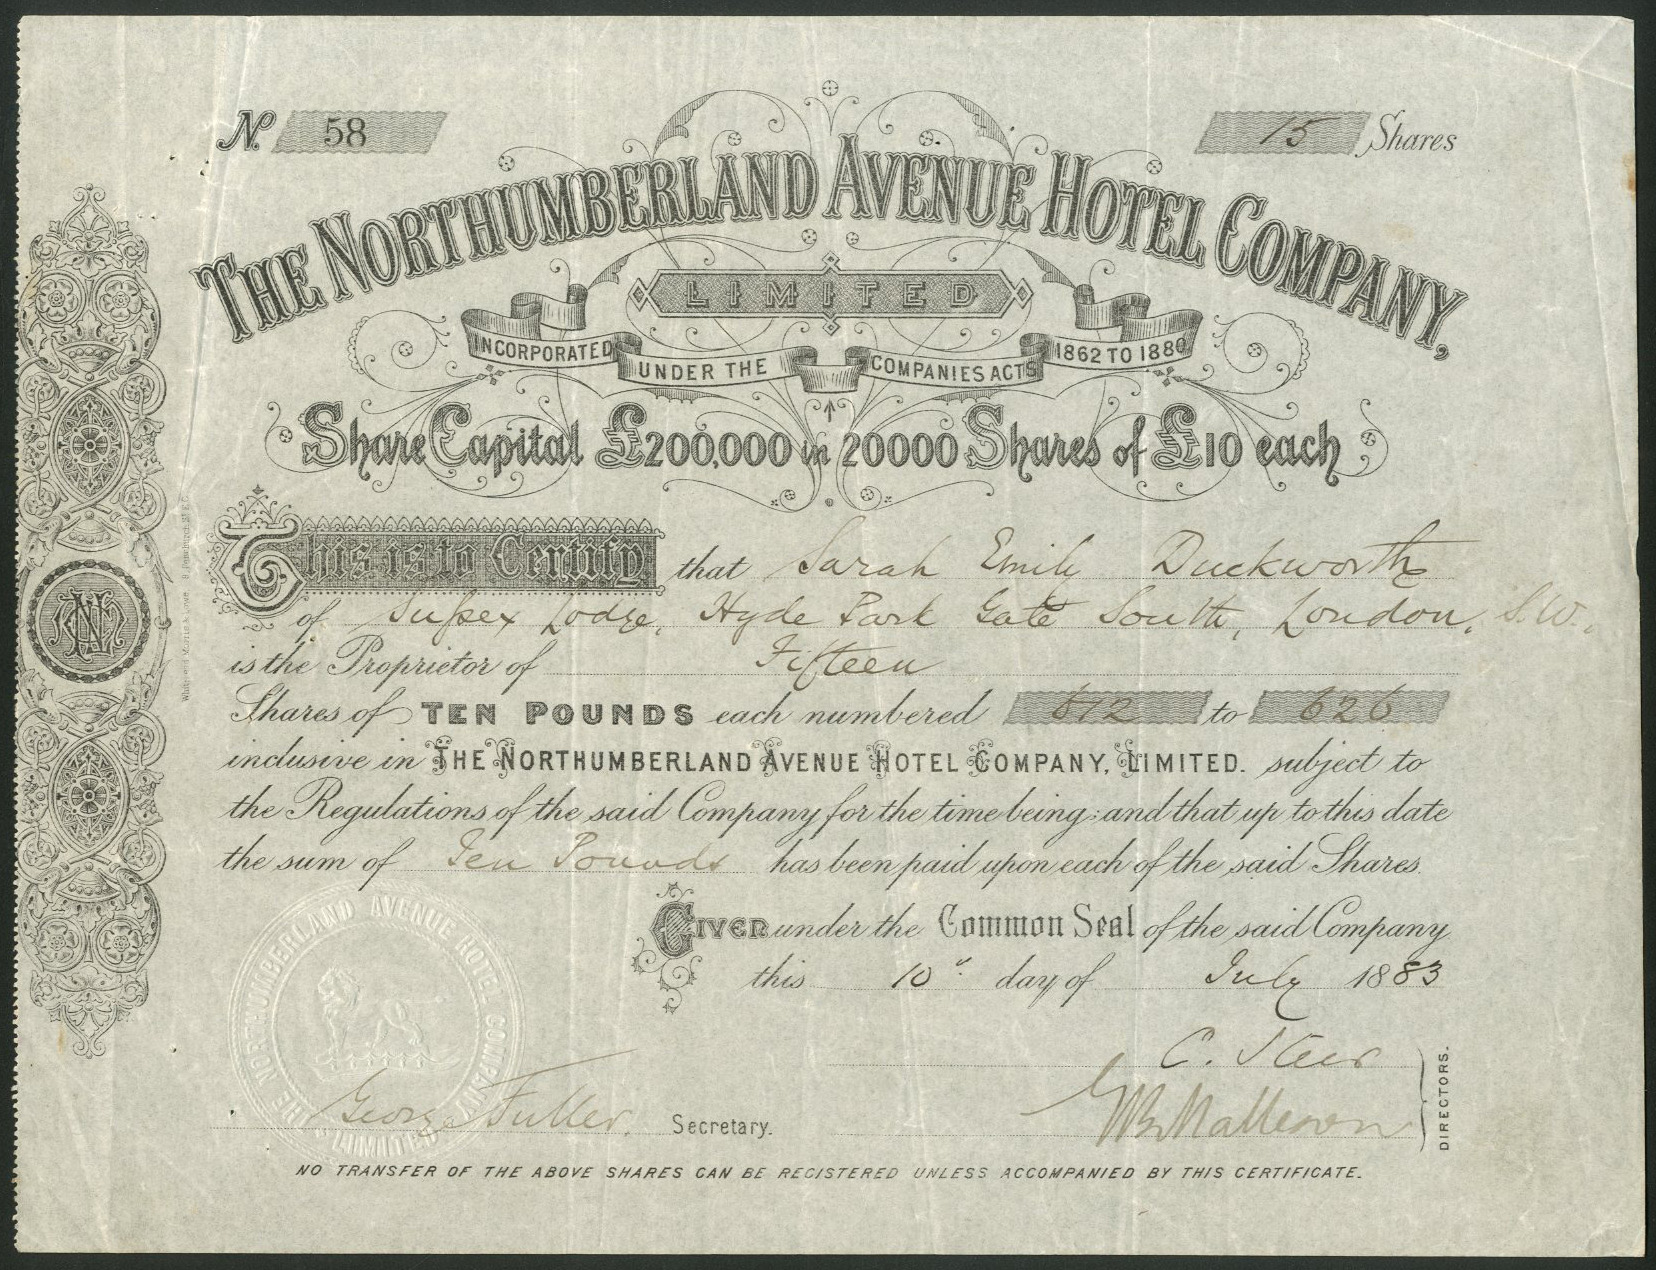 No. 58
15 Shares
THE NORTHUMBERLAND AVENUE HOTEL COMPANY,
LIMITED
INCORPORATED UNDER THE COMPANIES ACTS 1862 TO 1880
Share Capital £200,000 in 20000 Shares of £10 each
This is to Certify that Sarah Emily Duckworth
of Sussex Lodge, Hyde Park Gate South, London, S.W.
is the Proprietor of Fifteen
Shares of TEN POUNDS each numbered 612 to 626
inclusive in THE NORTHUMBERLAND AVENUE HOTEL COMPANY, LIMITED. subject to
the Regulations of the said Company for the time being: and that up to this date
the sum of Ten Pounds has been paid upon each of the said Shares.
GIVEN under the Common Seal of the said Company
this 10th day of July 1883
C. Steer
George Fuller. Secretary.
DIRECTORS.
THE NORTHUMBERLAND AVENUE HOTEL COMPANY LIMITED
NO TRANSFER OF THE ABOVE SHARES CAN BE REGISTERED UNLESS ACCOMPANIED BY THIS CERTIFICATE.